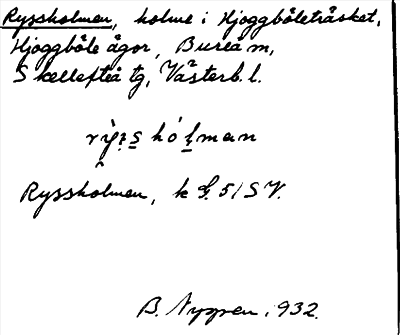 Ryssholmen, holme i Hjoggböleträsket,
Hjoggböle ägor, Bureå m,
Skellefteå tg, Västerb. l.
Ryssholmen, k 51 SV.
B. Nygren 1932.